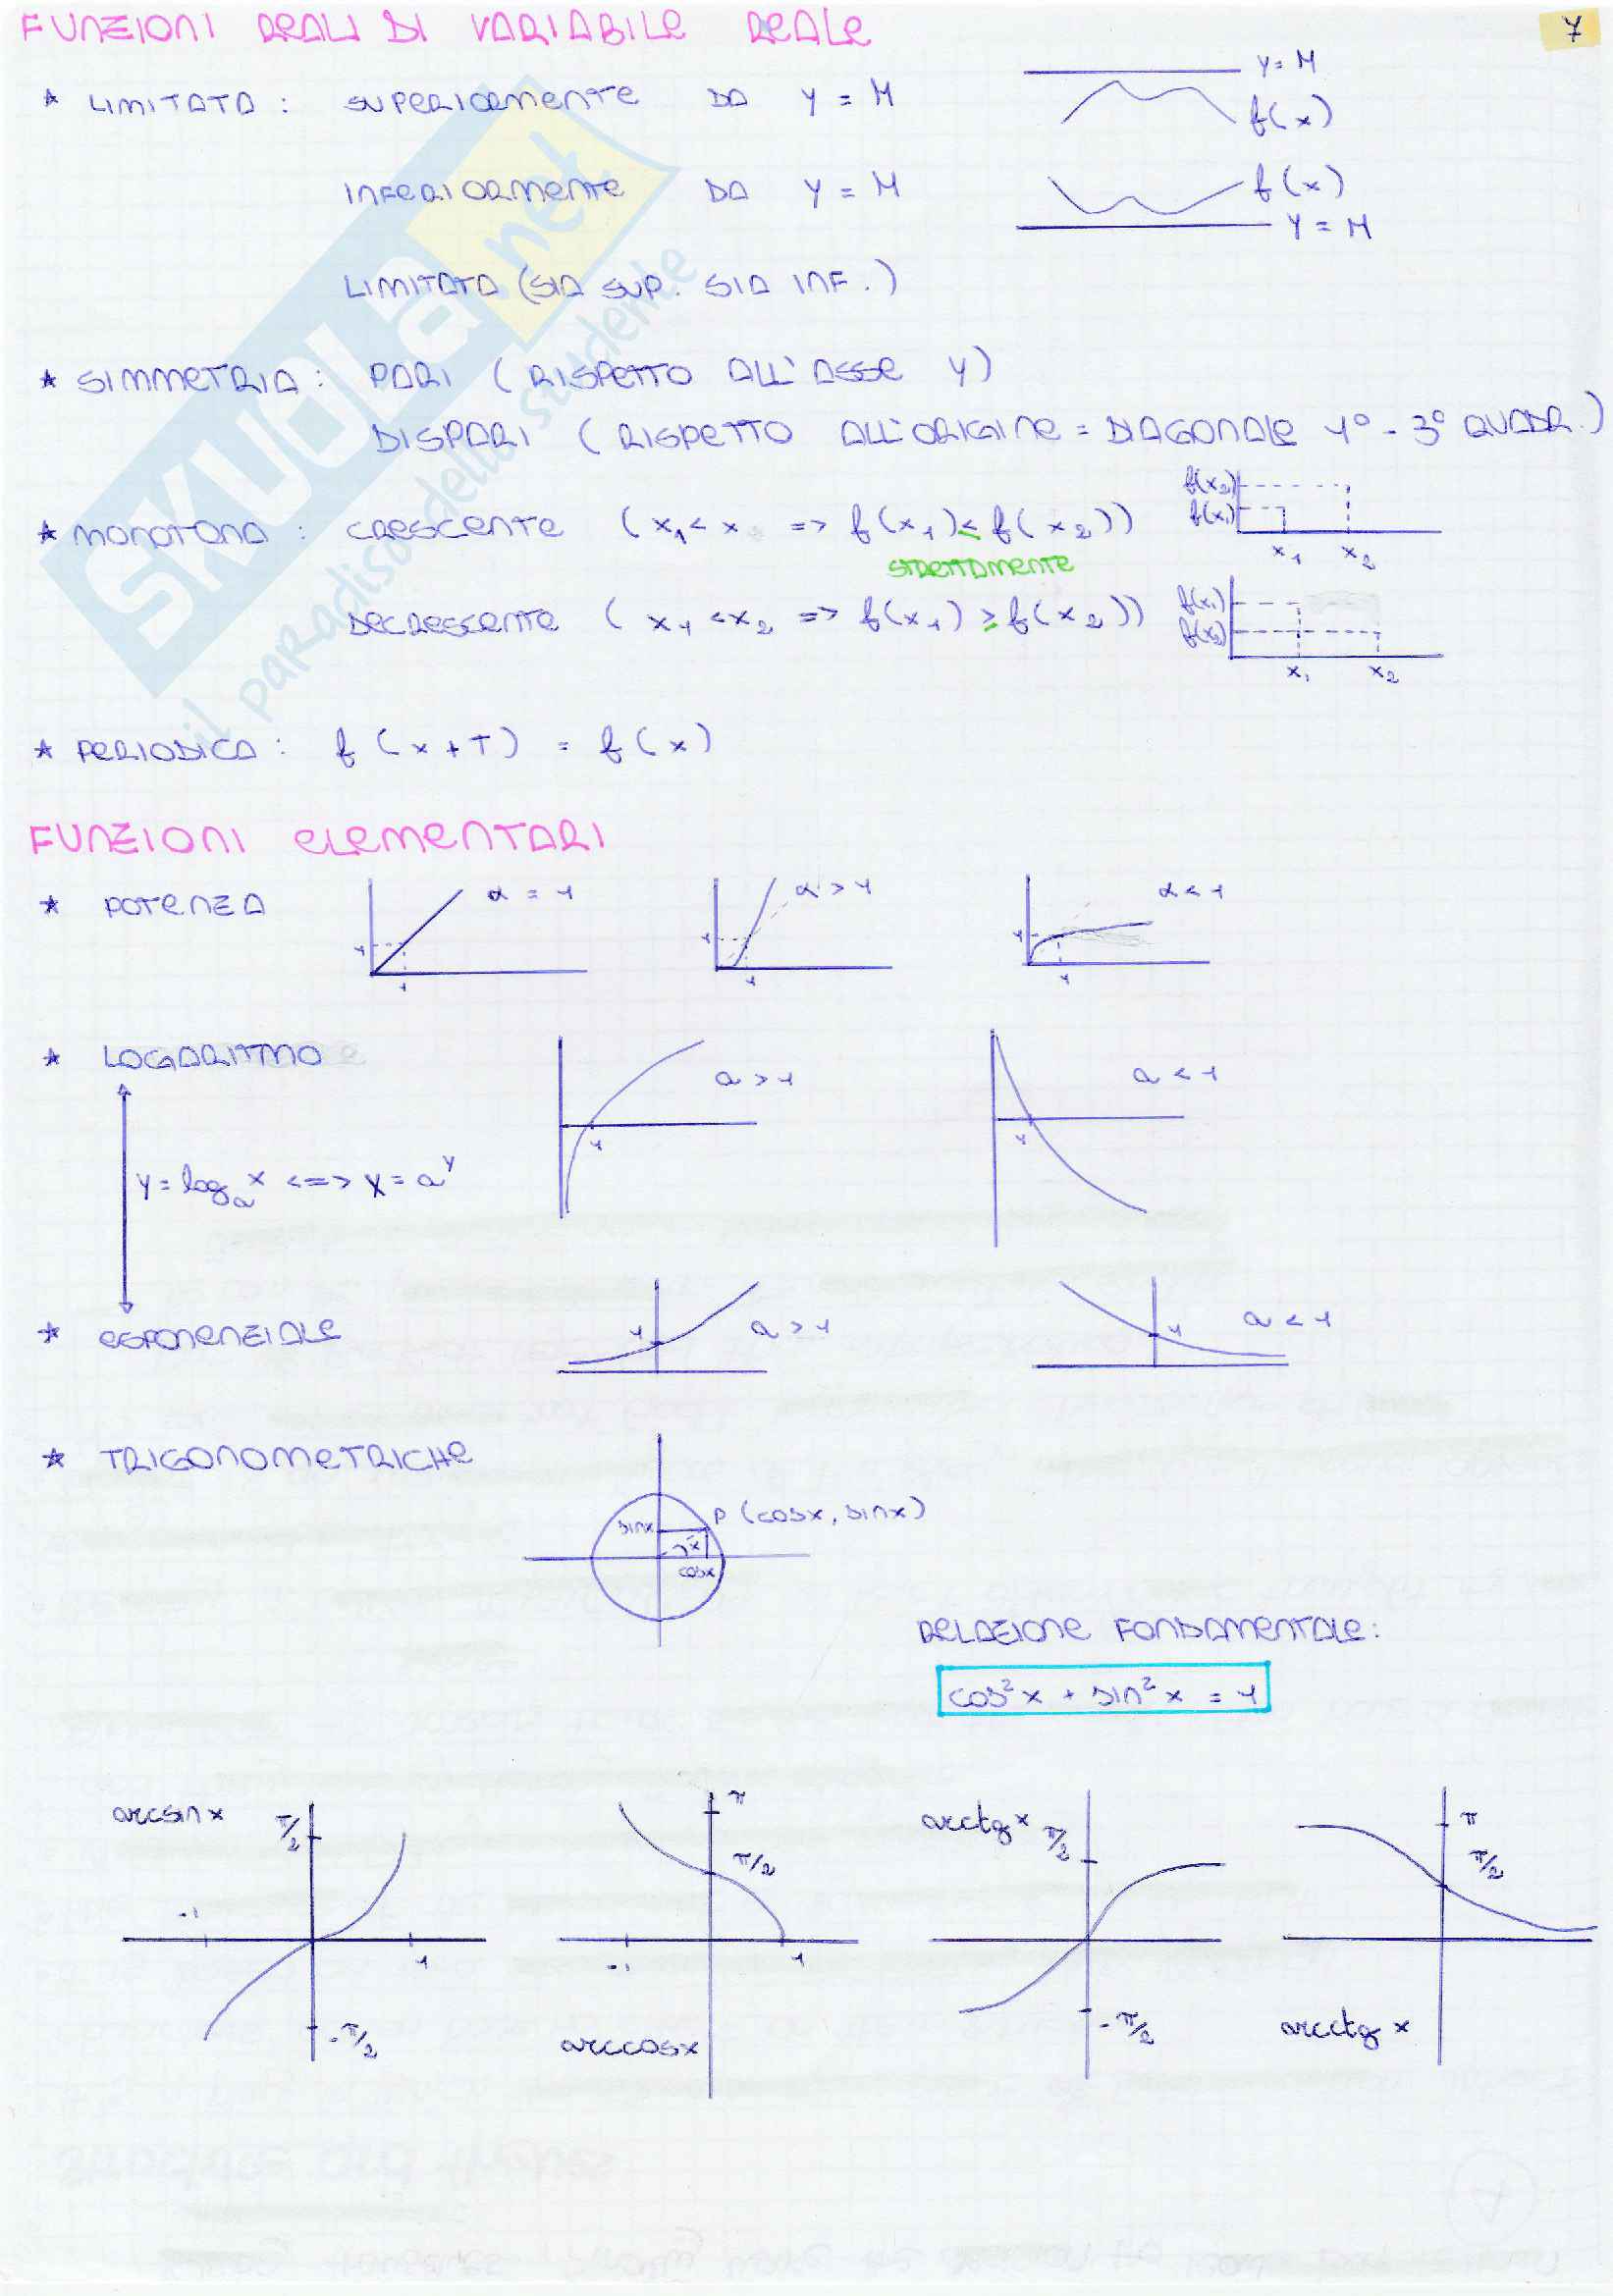 FUNZIONI REALI DI VARIABILE REALE
7
* LIMITATA : SUPERIORMENTE DA y = M
y = M
f(x)
INFERIORMENTE DA y = M
f(x)
y = M
LIMITATA (SIA SUP. SIA INF.)
* SIMMETRIA : PARI (RISPETTO ALL'ASSE y)
DISPARI (RISPETTO ALL'ORIGINE = DIAGONALE 1° - 3° QUADR.)
* MONOTONA : CRESCENTE (x₁ < x => f(x₁) ≤ f(x₂))
f(x₂)
f(x₁)
x₁ x₂
STRETTAMENTE
DECRESCENTE (x₁ < x₂ => f(x₁) ≥ f(x₂))
f(x₁)
f(x₂)
x₁ x₂
* PERIODICA : f(x+T) = f(x)
FUNZIONI ELEMENTARI
* POTENZA
α = 1
1
1
α > 1
1
1
α < 1
1
1
* LOGARITMO
a > 1
1
a < 1
1
y = logₐ x <=> x = a^y
* ESPONENZIALE
1
a > 1
1
a < 1
* TRIGONOMETRICHE
P (cosx, sinx)
sinx
x
cosx
RELAZIONE FONDAMENTALE:
cos²x + sin²x = 1
arcsin x
π/2
-1
1
-π/2
π
π/2
-1
1
arccosx
arctg x
π/2
-π/2
π
π/2
arcctg x
SKUOLA.net
il paradiso dello studente